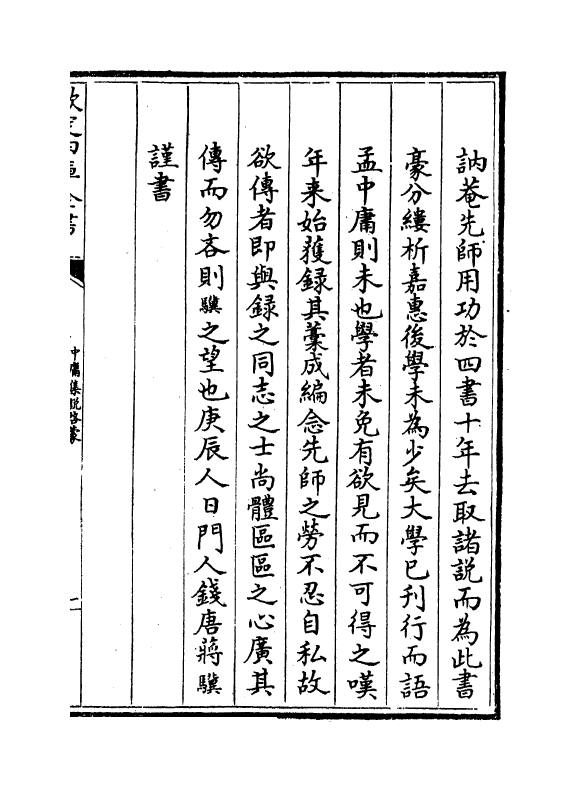 訥菴先師用功於四書十年去取諸説而為此書
豪分縷析嘉惠後學未為少矣大學已刋行而語
孟中庸則未也學者未免有欲見而不可得之嘆
年来始獲録其藁成編念先師之勞不忍自私故
欲傳者即與録之同志之士尚體區區之心廣其
傳而勿吝則驥之望也庚辰人日門人錢唐蔣驥
謹書
欽定四庫全書
中庸集説啓蒙
二